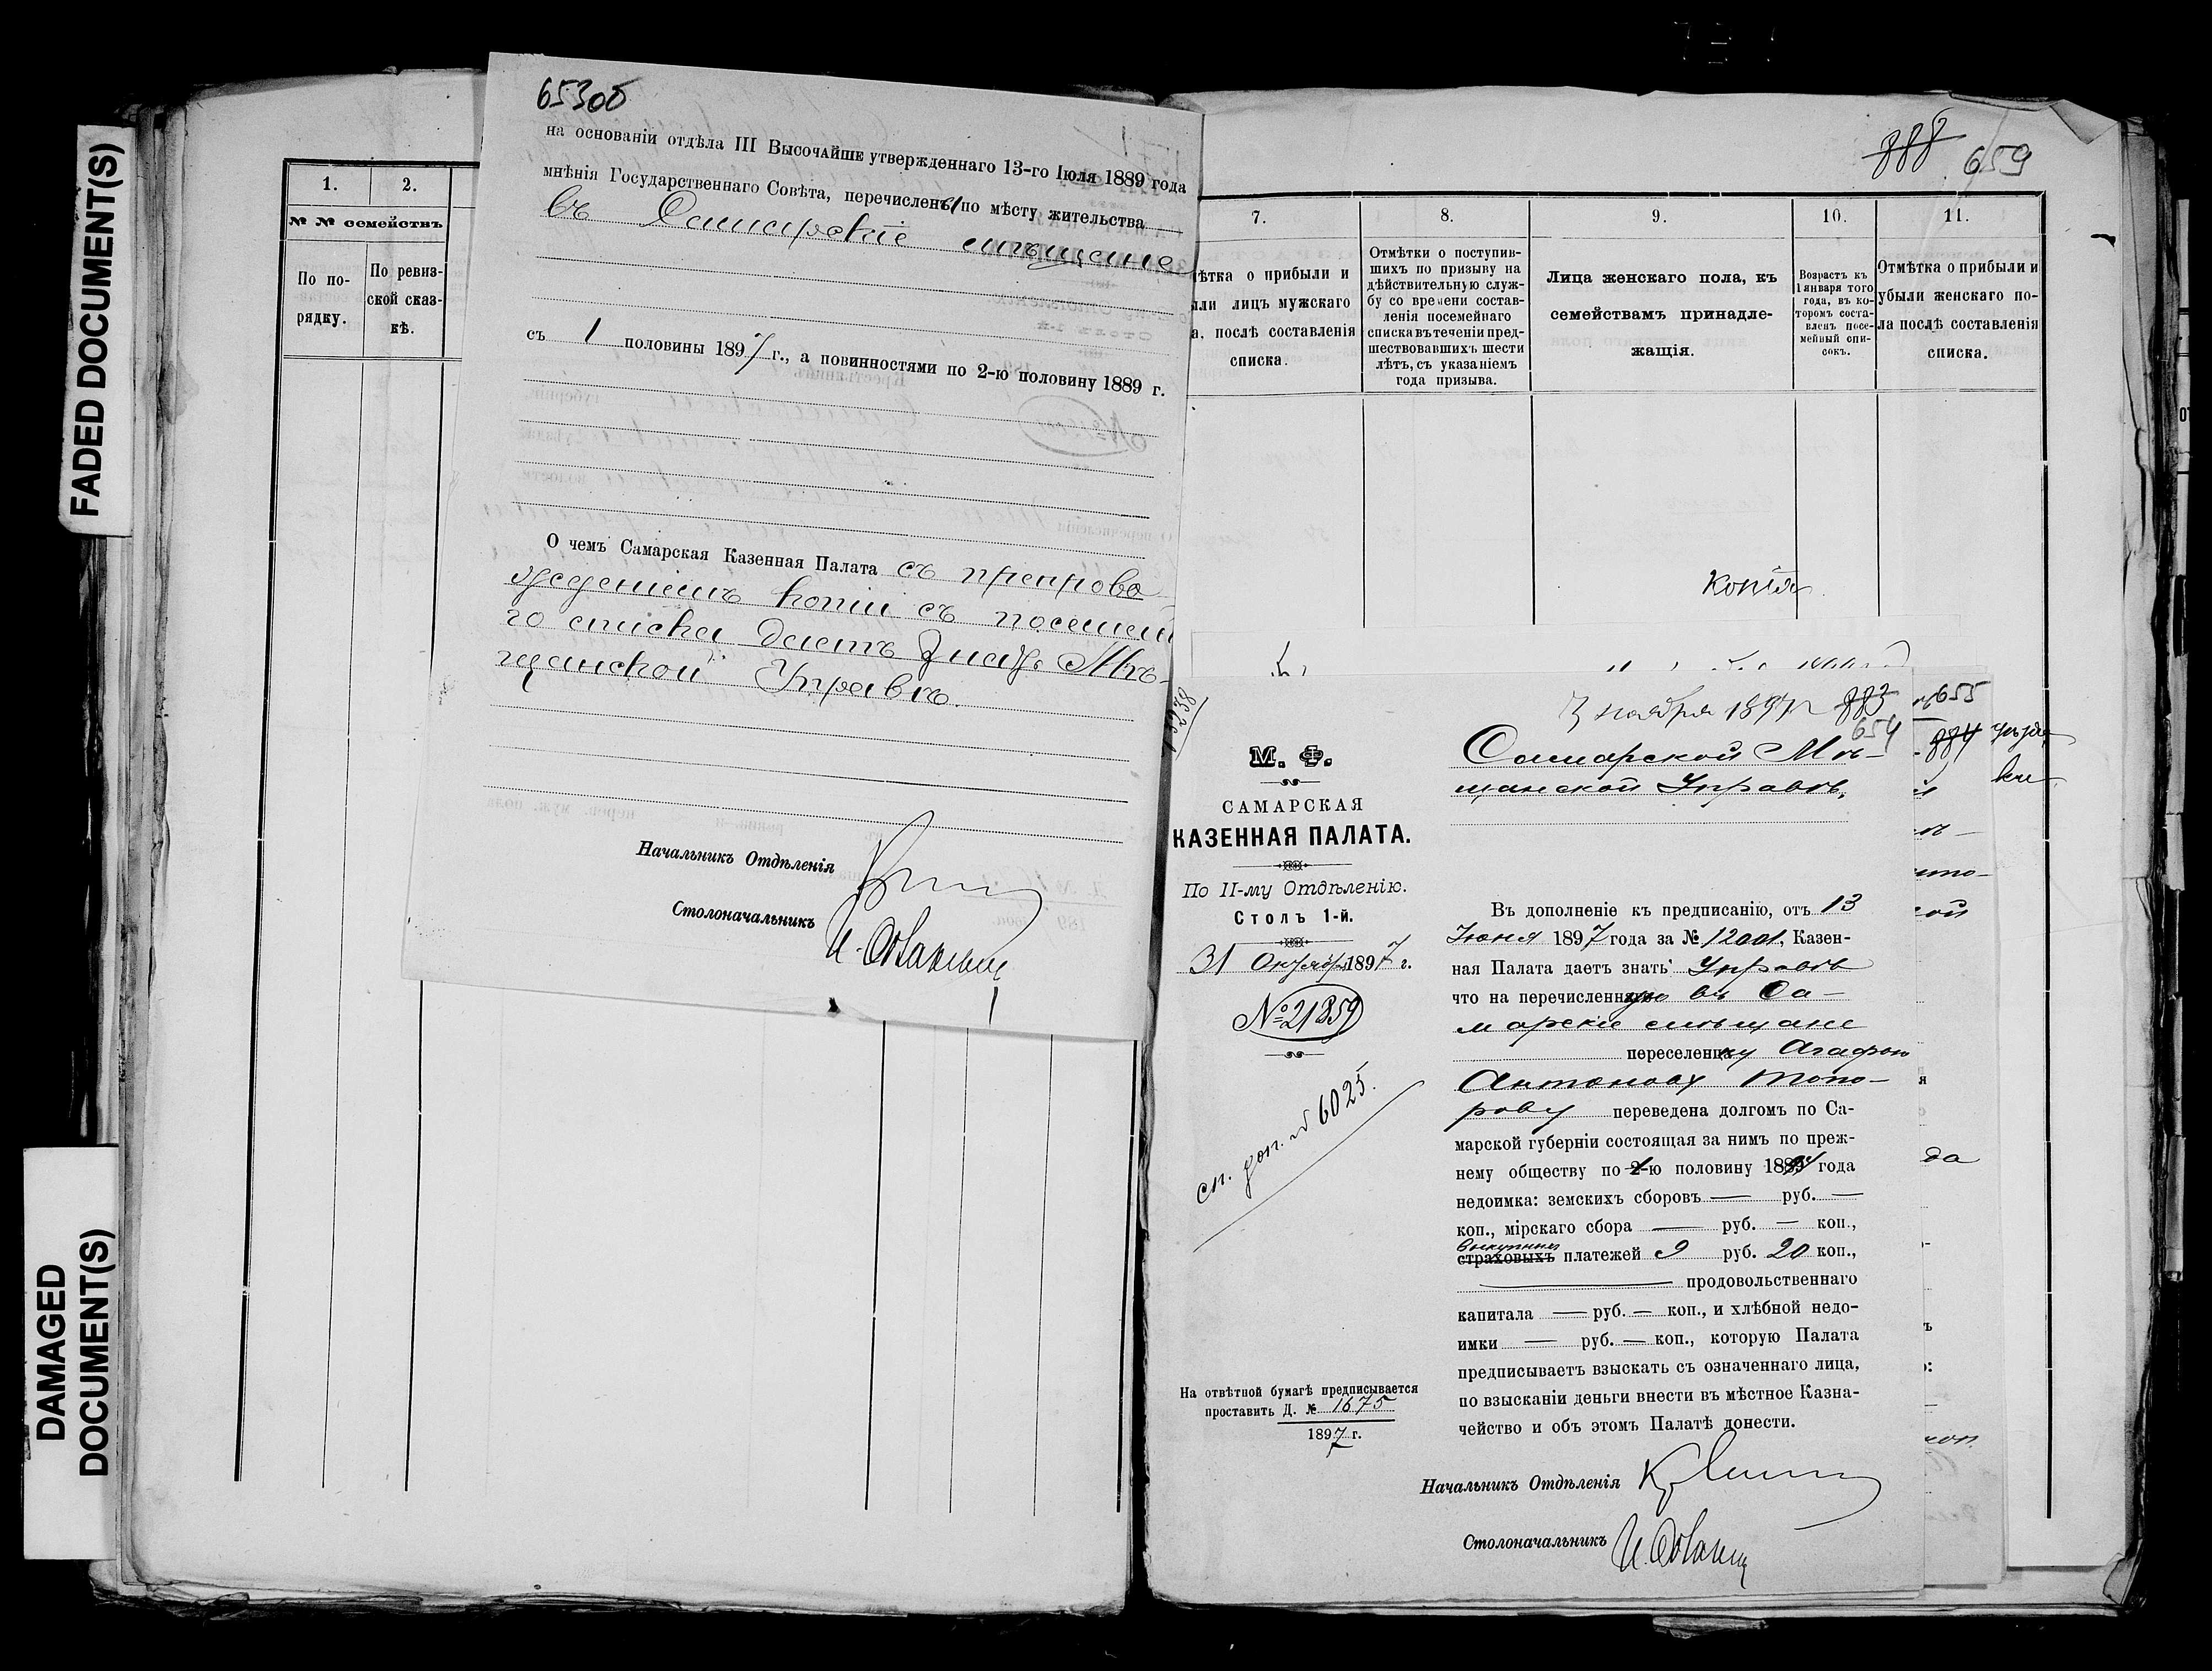 FADED DOCUMENT(S)
DAMAGED
DOCUMENT(S)
1.
2.
№ № семействъ
По по-
рядку.
По ревиз-
ской сказ-
кѣ.
653об
на основаніи отдѣла III Высочайше утвержденнаго 13-го Іюля 1889 года
мнѣнія Государственнаго Совѣта, перечислены по мѣсту жительства
въ Самарскіе мѣщане
съ 1 половины 1897 г., а повинностями по 2-ю половину 1889 г.
О чемъ Самарская Казенная Палата съ препрово-
жденіемъ копіи съ посемей
го списка даетъ знать Мѣ-
щанской Управѣ.
Начальникъ Отдѣленія
Столоначальникъ
888 659
7.
8.
9.
10.
11.
ѣтка о прибыли и
ыли лицъ мужскаго
а, послѣ составленія
списка.
Отмѣтки о поступив-
шихъ по призыву на
дѣйствительную служ-
бу со времени состав-
ленія посемейнаго
списка въ теченіи пред-
шествовавшихъ шести
лѣтъ, съ указаніемъ
года призыва.
Лица женскаго пола, къ
семействамъ принадле-
жащія.
Возрастъ къ
1 января того
года, въ ко-
торомъ соста-
вленъ посе-
мейный спи-
сокъ.
Отмѣтка о прибыли и
убыли женскаго по-
ла послѣ составленія
списка.
Копія
655
884
3 ноября 1897 г. 883
654
М. Ф.
САМАРСКАЯ
КАЗЕННАЯ ПАЛАТА.
По II-му Отдѣленію.
Столъ 1-й.
31 Октября 1897 г.
№ 21859
сп. доп. № 6025.
На отвѣтной бумагѣ предписывается
проставить Д. № 1675
1897 г.
Самарской Мѣ-
щанской Управѣ.
Въ дополненіе къ предписанію, отъ 13
Іюня 1897 года за № 12001, Казен-
ная Палата даетъ знать Управѣ
что на перечисленную въ Са-
марскіе мѣщане
переселенцу Агафону
Антонову Топо-
рову переведена долгомъ по Са-
марской губерніи состоящая за нимъ по преж-
нему обществу по 2-ю половину года
недоимка: земскихъ сборовъ — руб. —
коп., мірскаго сбора — руб. — коп.,
выкупныхъ
страховыхъ платежей 9 руб. 20 коп.,
продовольственнаго
капитала — руб. — коп., и хлѣбной недо-
имки — руб. — коп., которую Палата
предписываетъ взыскать съ означеннаго лица,
по взысканіи деньги внести въ мѣстное Казна-
чейство и объ этомъ Палатѣ донести.
Начальникъ Отдѣленія
Столоначальникъ